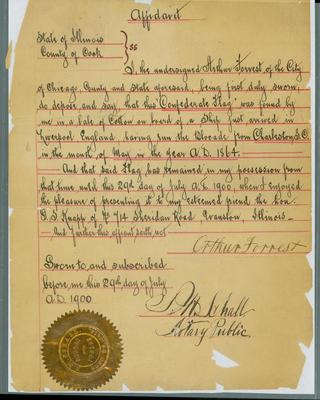 Affidavit
State of Illinois
County of Cook } ss
I, the undersigned Arthur Forrest of the City
of Chicago, County and State aforesaid, being first duly sworn,
do depose and say, that this "Confederate Flag" was found by
me in a bale of Cotton on board of a Ship just arrived in
Liverpool England, having run the Blocade from Charleston, S.C.
in the month of May in the year A.D. 1864.
And that said Flag has remained in my possession from
that time until this 29th day of July A.D. 1900, when I enjoyed
the pleasure of presenting it to my esteemed friend the Hon.
G. S. Knapp of No 714 Sheridan Road Evanston, Illinois_
And further this affiant saith not
Arthur Forrest
Sworn to and subscribed
before me this 29th day of July
A.D. 1900
Notary Public.